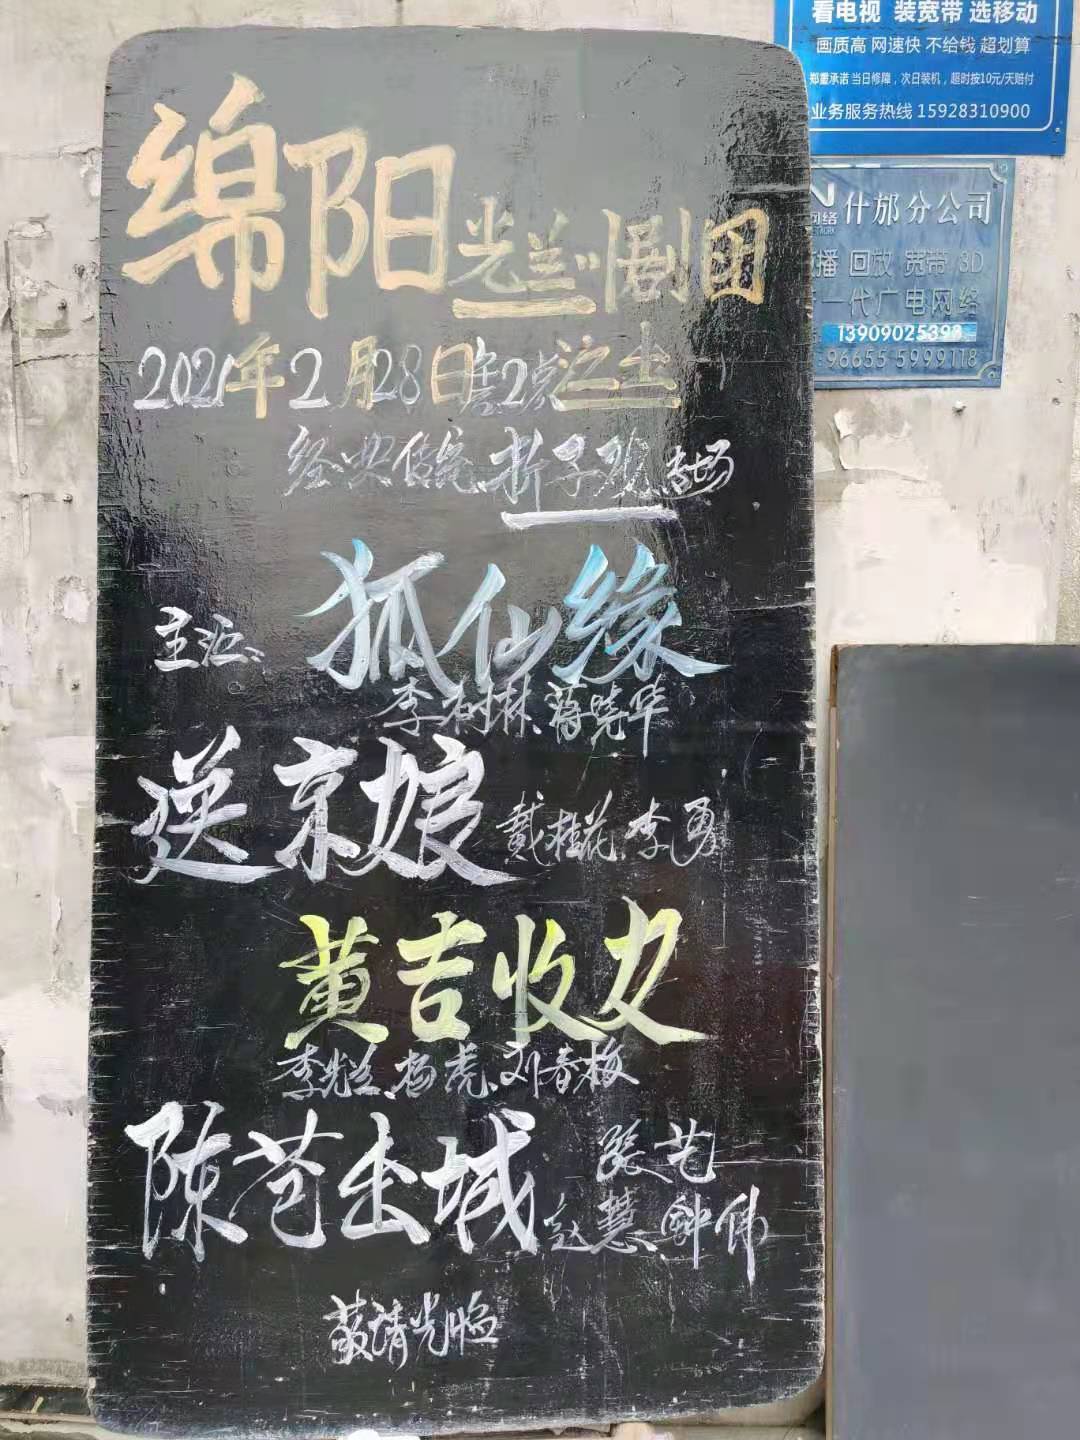 绵阳光兰川剧团
2021年2月28日2点
经典传统折子戏专场
狐仙缘
主演:
李树林、蒋晓华
送京娘
戴桂花、李勇
黄吉收
李先兰、杨虎、刘春梅
陈苍
张艺
赵慧、钟伟
敬请光临
看电视 装宽带 选移动
画质高 网速快 不给钱 超划算
郑重承诺 当日修障,次日装机,超时按10元/天赔付
业务服务热线 15928310900
什邡分公司
播 回放 宽带 3D
一代广电网络
13909025398
96655 5999118